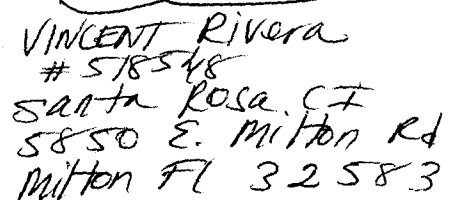 VINCENT Rivera
# 518548
Santa Rosa CI
5850 E. Milton Rd
Milton Fl 32583